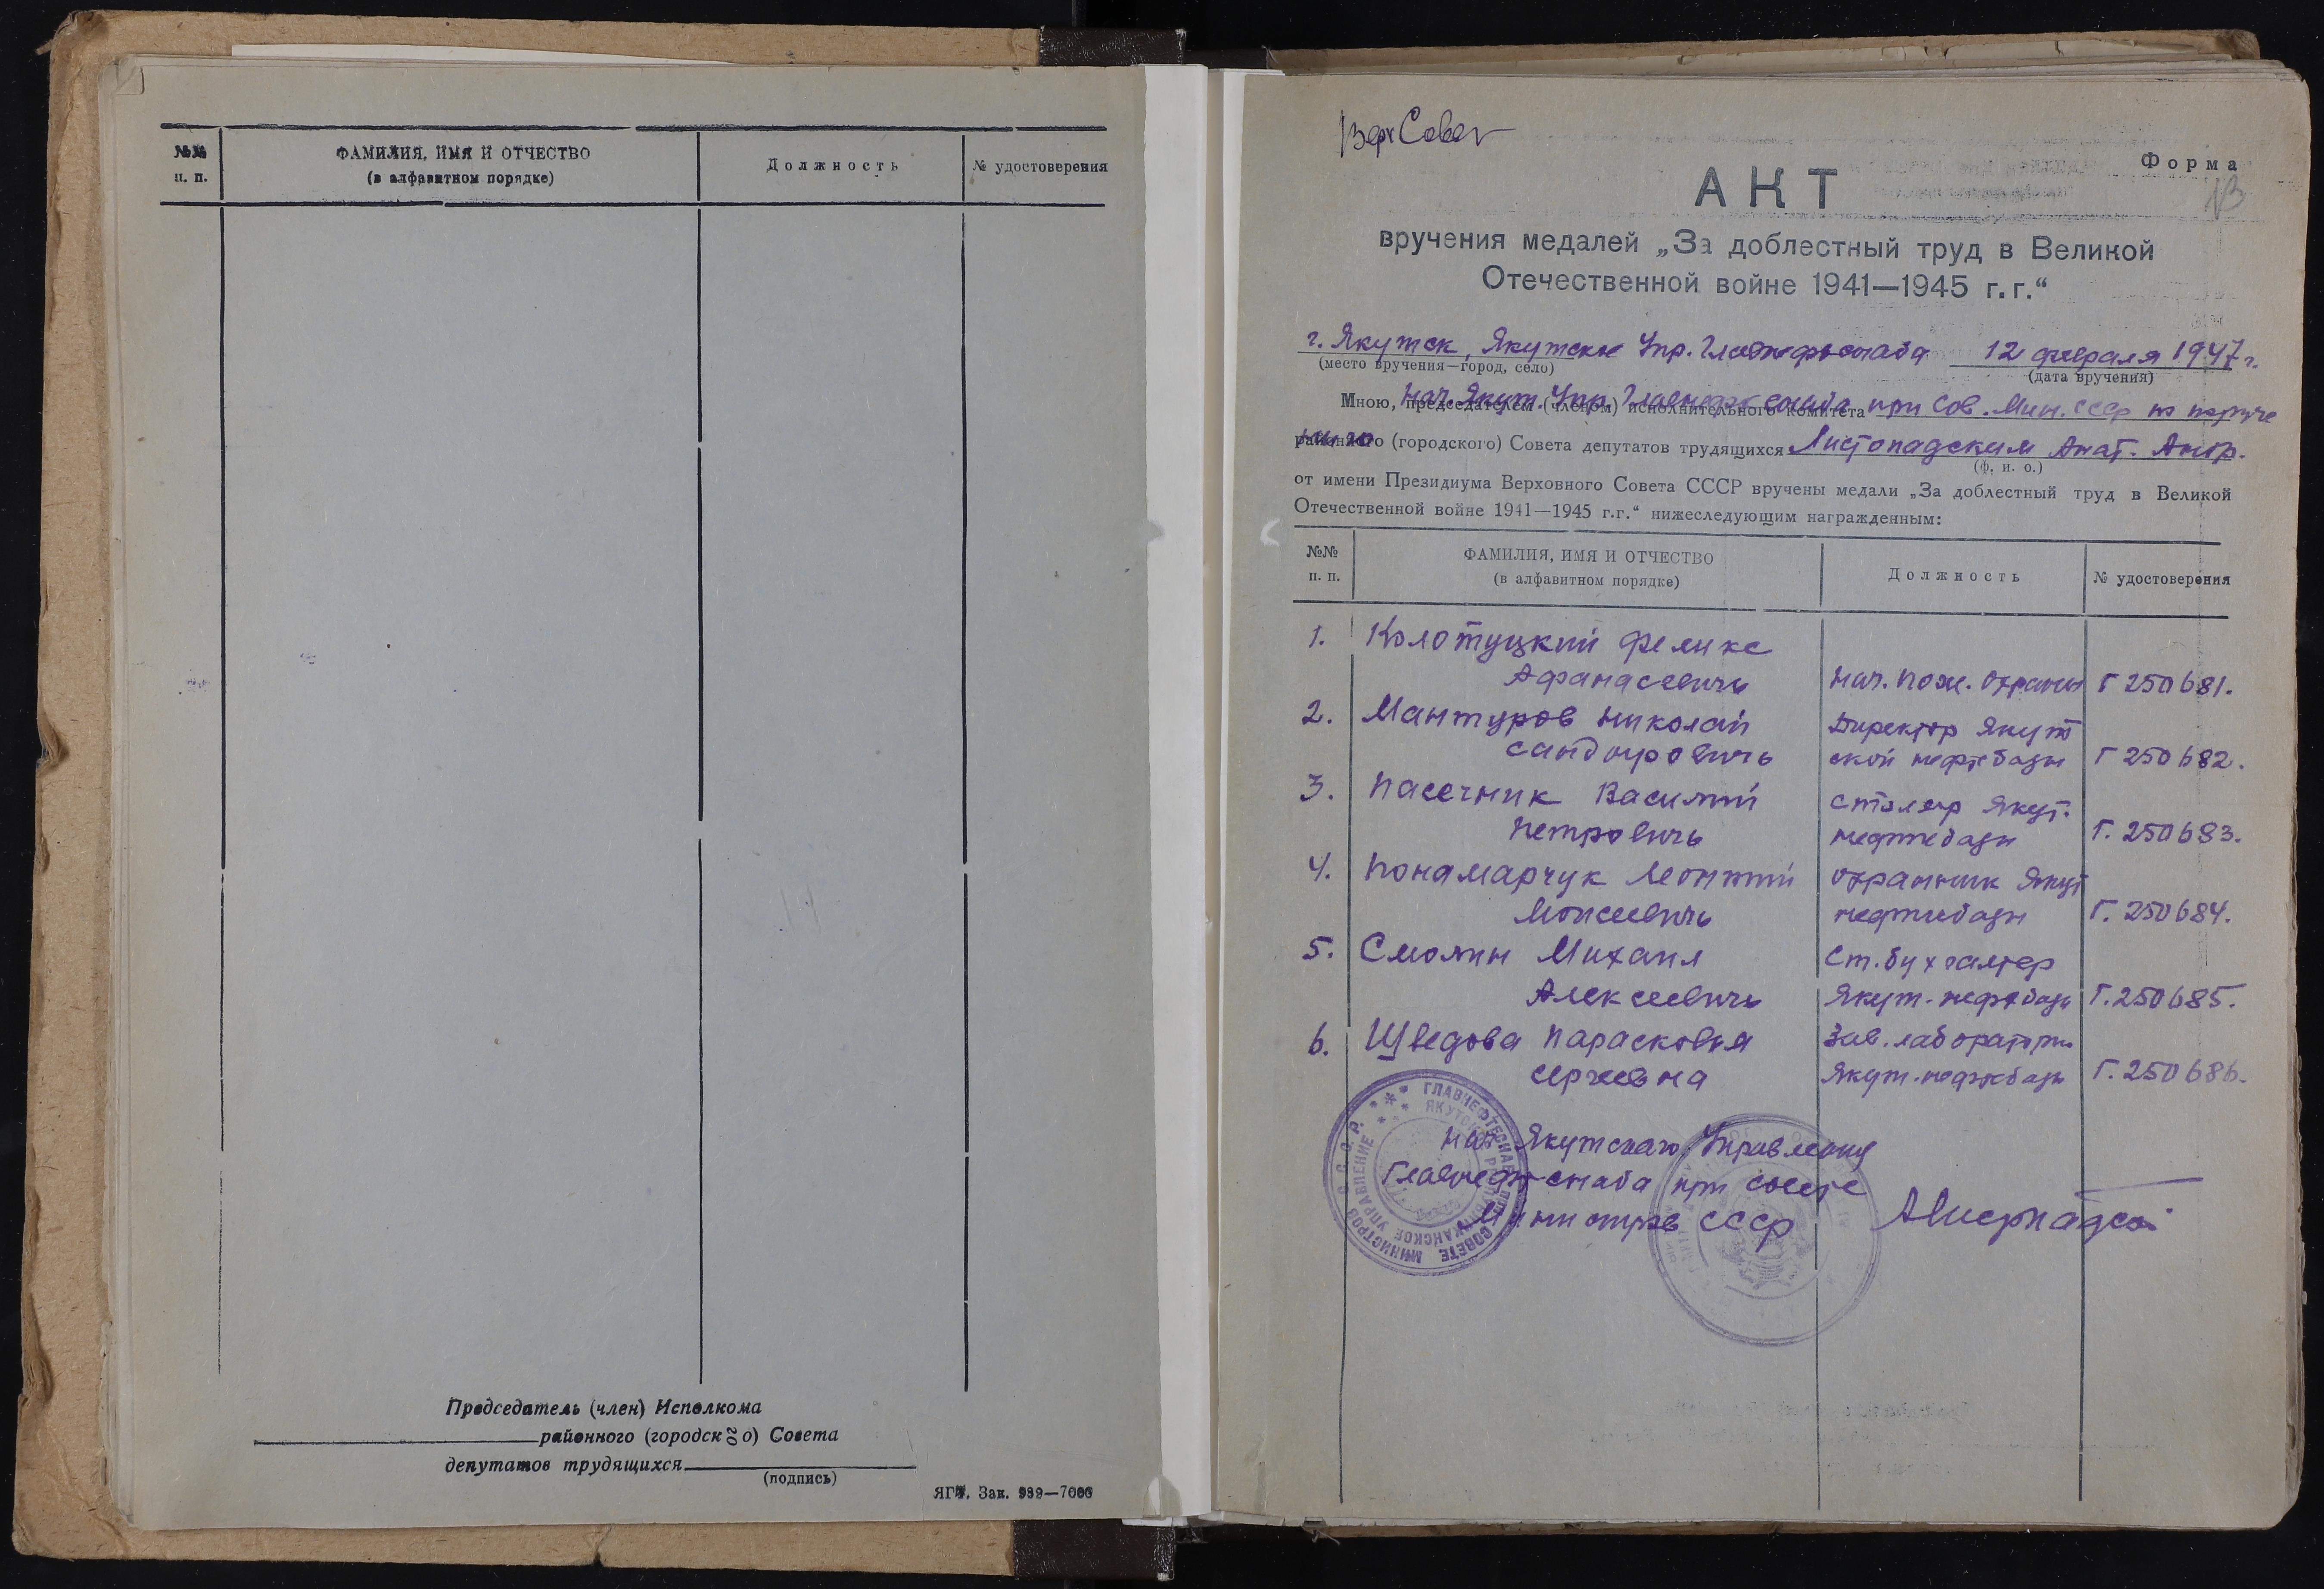 №№
п. п.
ФАМИЛИЯ, ИМЯ И ОТЧЕСТВО
(в алфавитном порядке)
Должность
№ удостоверения
Председатель (член) Исполкома
районного (городского) Совета
депутатов трудящихся
(подпись)
ЯГТ. Зак. 939—7000
ВерхСовет
Форма
АКТ
вручения медалей „За доблестный труд в Великой
Отечественной войне 1941—1945 г.г.“
г. Якутск, Якутское Упр. Главнефтеснаба 12 февраля 1947 г.
(место вручения—город, село)
(дата вручения)
Нач. Якут. Упр. Главнефтеснаба при Сов. Мин. СССР по поруче
Мною, председателем (членом) исполнительного комитета
районного (городского) Совета депутатов трудящихся Листопадским Анат. Антр.
(ф. и. о.)
от имени Президиума Верховного Совета СССР вручены медали „За доблестный труд в Великой
Отечественной войне 1941—1945 г.г.“ нижеследующим награжденным:
№№
п. п.
ФАМИЛИЯ, ИМЯ И ОТЧЕСТВО
(в алфавитном порядке)
Должность
№ удостоверения
1. Колотуцкий Феликс
Афанасевичь Нач. пож. охраны Г 250681.
2. Мантуров Николай Директор Якут
Сандуровичь ской нефтебазы Г 250682.
3. Пасечник Василий столяр Якут.
Петровичь нефтебазы Г. 250683.
4. Понамарчук Леонтий охранник Якут
Моисеевичь нефтебазы Г. 250684.
5. Смолин Михаил Ст. бухгалтер
Алексеевичь Якут. нефтебазы Г. 250685.
6. Щведова Парасковья Зав. лаборатори
Сергеевна Якут. нефтебазы Г. 250686.
Нач Якутского Управления
Главнефтеснаба при совете
Министров СССР
ГЛАВНЕФТЕСНАБ ПРИ СОВЕТЕ МИНИСТРОВ С.С.С.Р.
ЯКУТСКОЕ РЕСПУБЛИКАНСКОЕ УПРАВЛЕНИЕ